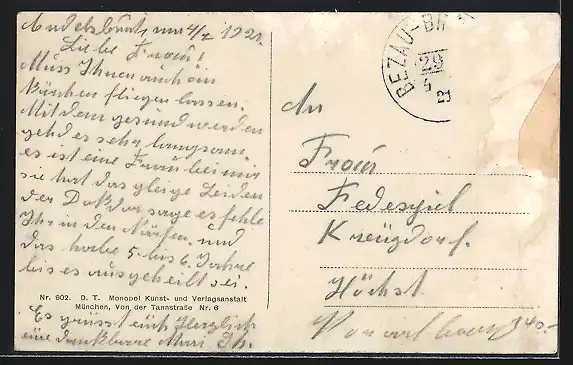 Andelsbuch am 4/5 1921.
Liebe Frau!
Muss Ihnen auch ein
Kärtchen fliegen lassen.
Mit dem gesund werden
gehd es sehr langsam.
es ist eine Frau bei mir
sie hat das gleige Leiden
der Doktor sage es fehle
Ihr in den Närfen. und
das habe 5. bis 6. Jahre
bis es ausgeheilt sei.
Nr. 602. D. T. Monopol Kunst- und Verlagsanstalt
München, Von der Tannstraße Nr. 6
Es grüsst eüch Herzlich
eüre dankbarre Mari Th.
BEZAU-BR
29
5
21
An
Frau
Fedespiel
Kreügdorf.
Höchst
Vorarlberg
340.-